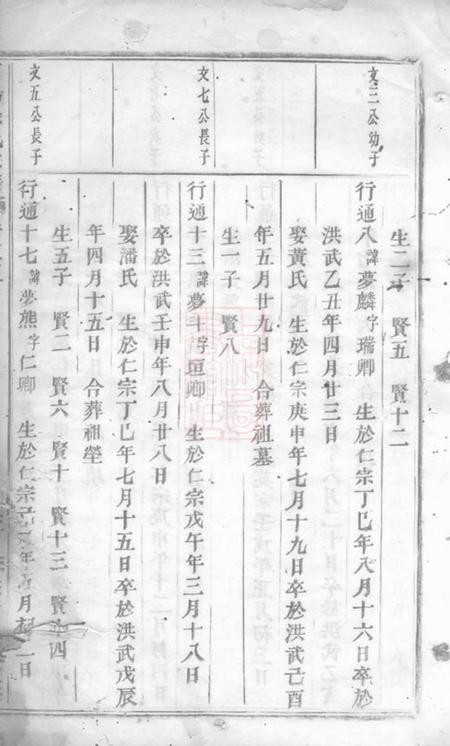 生二子 賢五 賢十二
文三公幼子
行通八諱夢麟字瑞卿 生於仁宗丁巳年八月十六日卒於
洪武乙丑年四月廿三日
娶黃氏 生於仁宗庚申年七月十九日卒於洪武己酉
年五月廿九日 合葬祖墓
生一子 賢八
文七公長子
行通十三諱夢斗字垣卿 生於仁宗戊午年三月十八日
卒於洪武壬申年八月廿八日
娶潘氏 生於仁宗丁巳年七月十五日卒於洪武戊辰
年四月十五日 合葬祖塋
生五子 賢二 賢六 賢十 賢十三 賢 四
文五公長子
行通十七諱夢熊字仁卿 生於仁宗己 年 月初 日